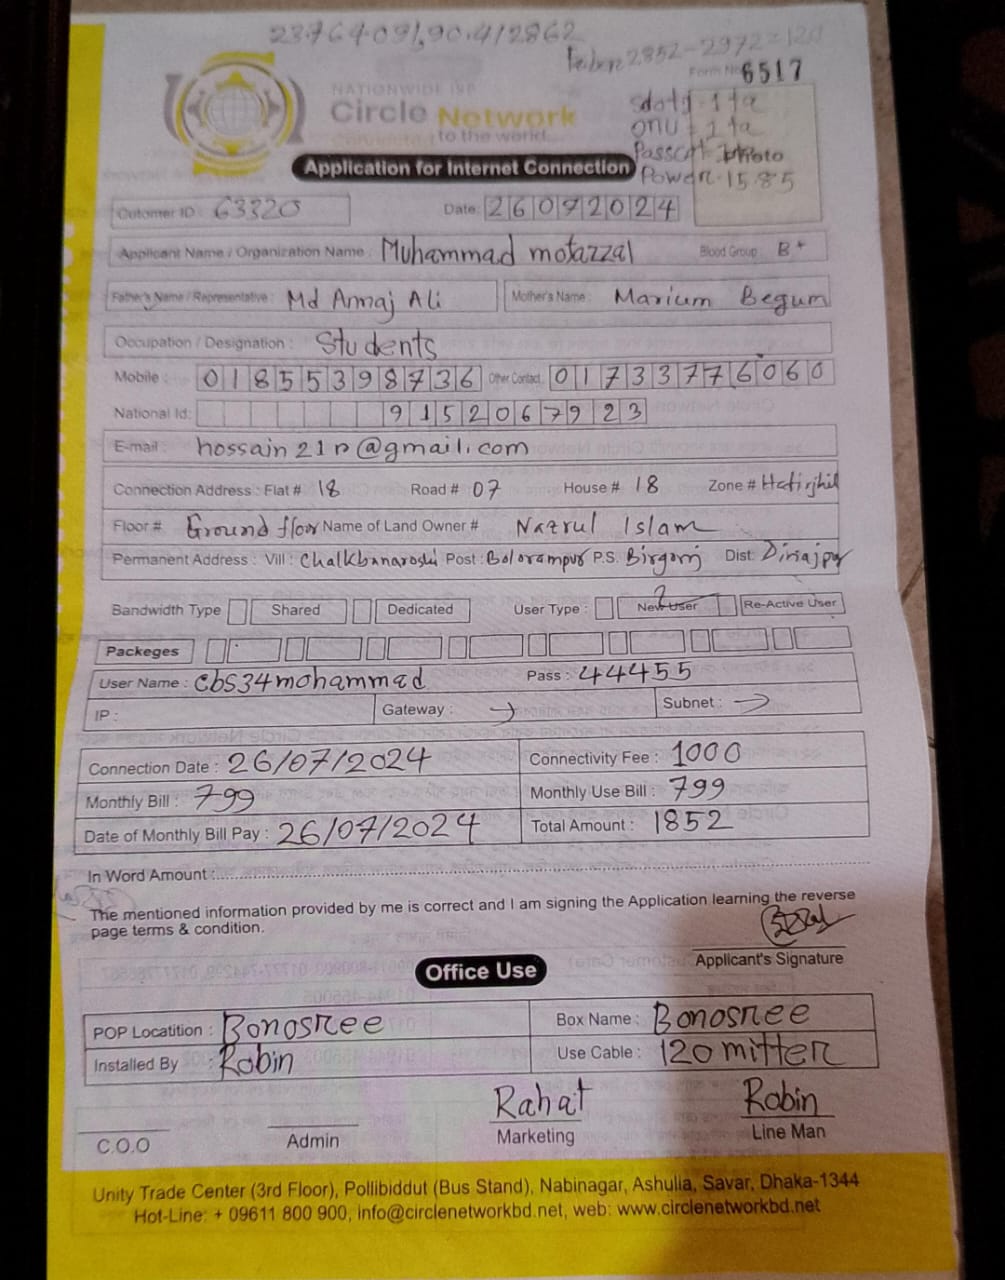 23.764091,90.412862
Feiber 2852-2972=120
Form No 6517
NATIONWIDE ISP
Circle Network
Connected to the world...
onu : 1 ta
Power-15.85
Application for Internet Connection
Cutomer ID : 63320 Date: 26072024
Applicant Name / Organization Name : Muhammad motazzal Blood Group : B+
Father's Name / Representative : Md Amaj Ali Mother's Name : Marium Begum
Occupation / Designation : Students
Mobile : 01855398736 Other Contact: 01733776060
National Id: 9152067923
E-mail : hossain21n@gmail.com
Connection Address : Flat # 18 Road # 07 House # 18 Zone # Hatirjhil
Floor # Ground floor Name of Land Owner # Nazrul Islam
Permanent Address : Vill : Chalkbanaroshi Post : Bolorampur P.S. Birgonj Dist: Dinajpur
Bandwidth Type Shared Dedicated User Type : New User Re-Active User
Packeges
User Name : cbs34mohammad Pass : 44455
IP : Gateway : Subnet :
Connection Date : 26/07/2024 Connectivity Fee : 1000
Monthly Bill : 799 Monthly Use Bill : 799
Date of Monthly Bill Pay : 26/07/2024 Total Amount : 1852
In Word Amount :
The mentioned information provided by me is correct and I am signing the Application learning the reverse
page terms & condition.
Applicant's Signature
Office Use
POP Locatition : Bonosree Box Name : Bonosree
Installed By : Robin Use Cable : 120 mitter
Rahat Robin
C.O.O Admin Marketing Line Man
Unity Trade Center (3rd Floor), Pollibiddut (Bus Stand), Nabinagar, Ashulia, Savar, Dhaka-1344
Hot-Line: + 09611 800 900, info@circlenetworkbd.net, web: www.circlenetworkbd.net